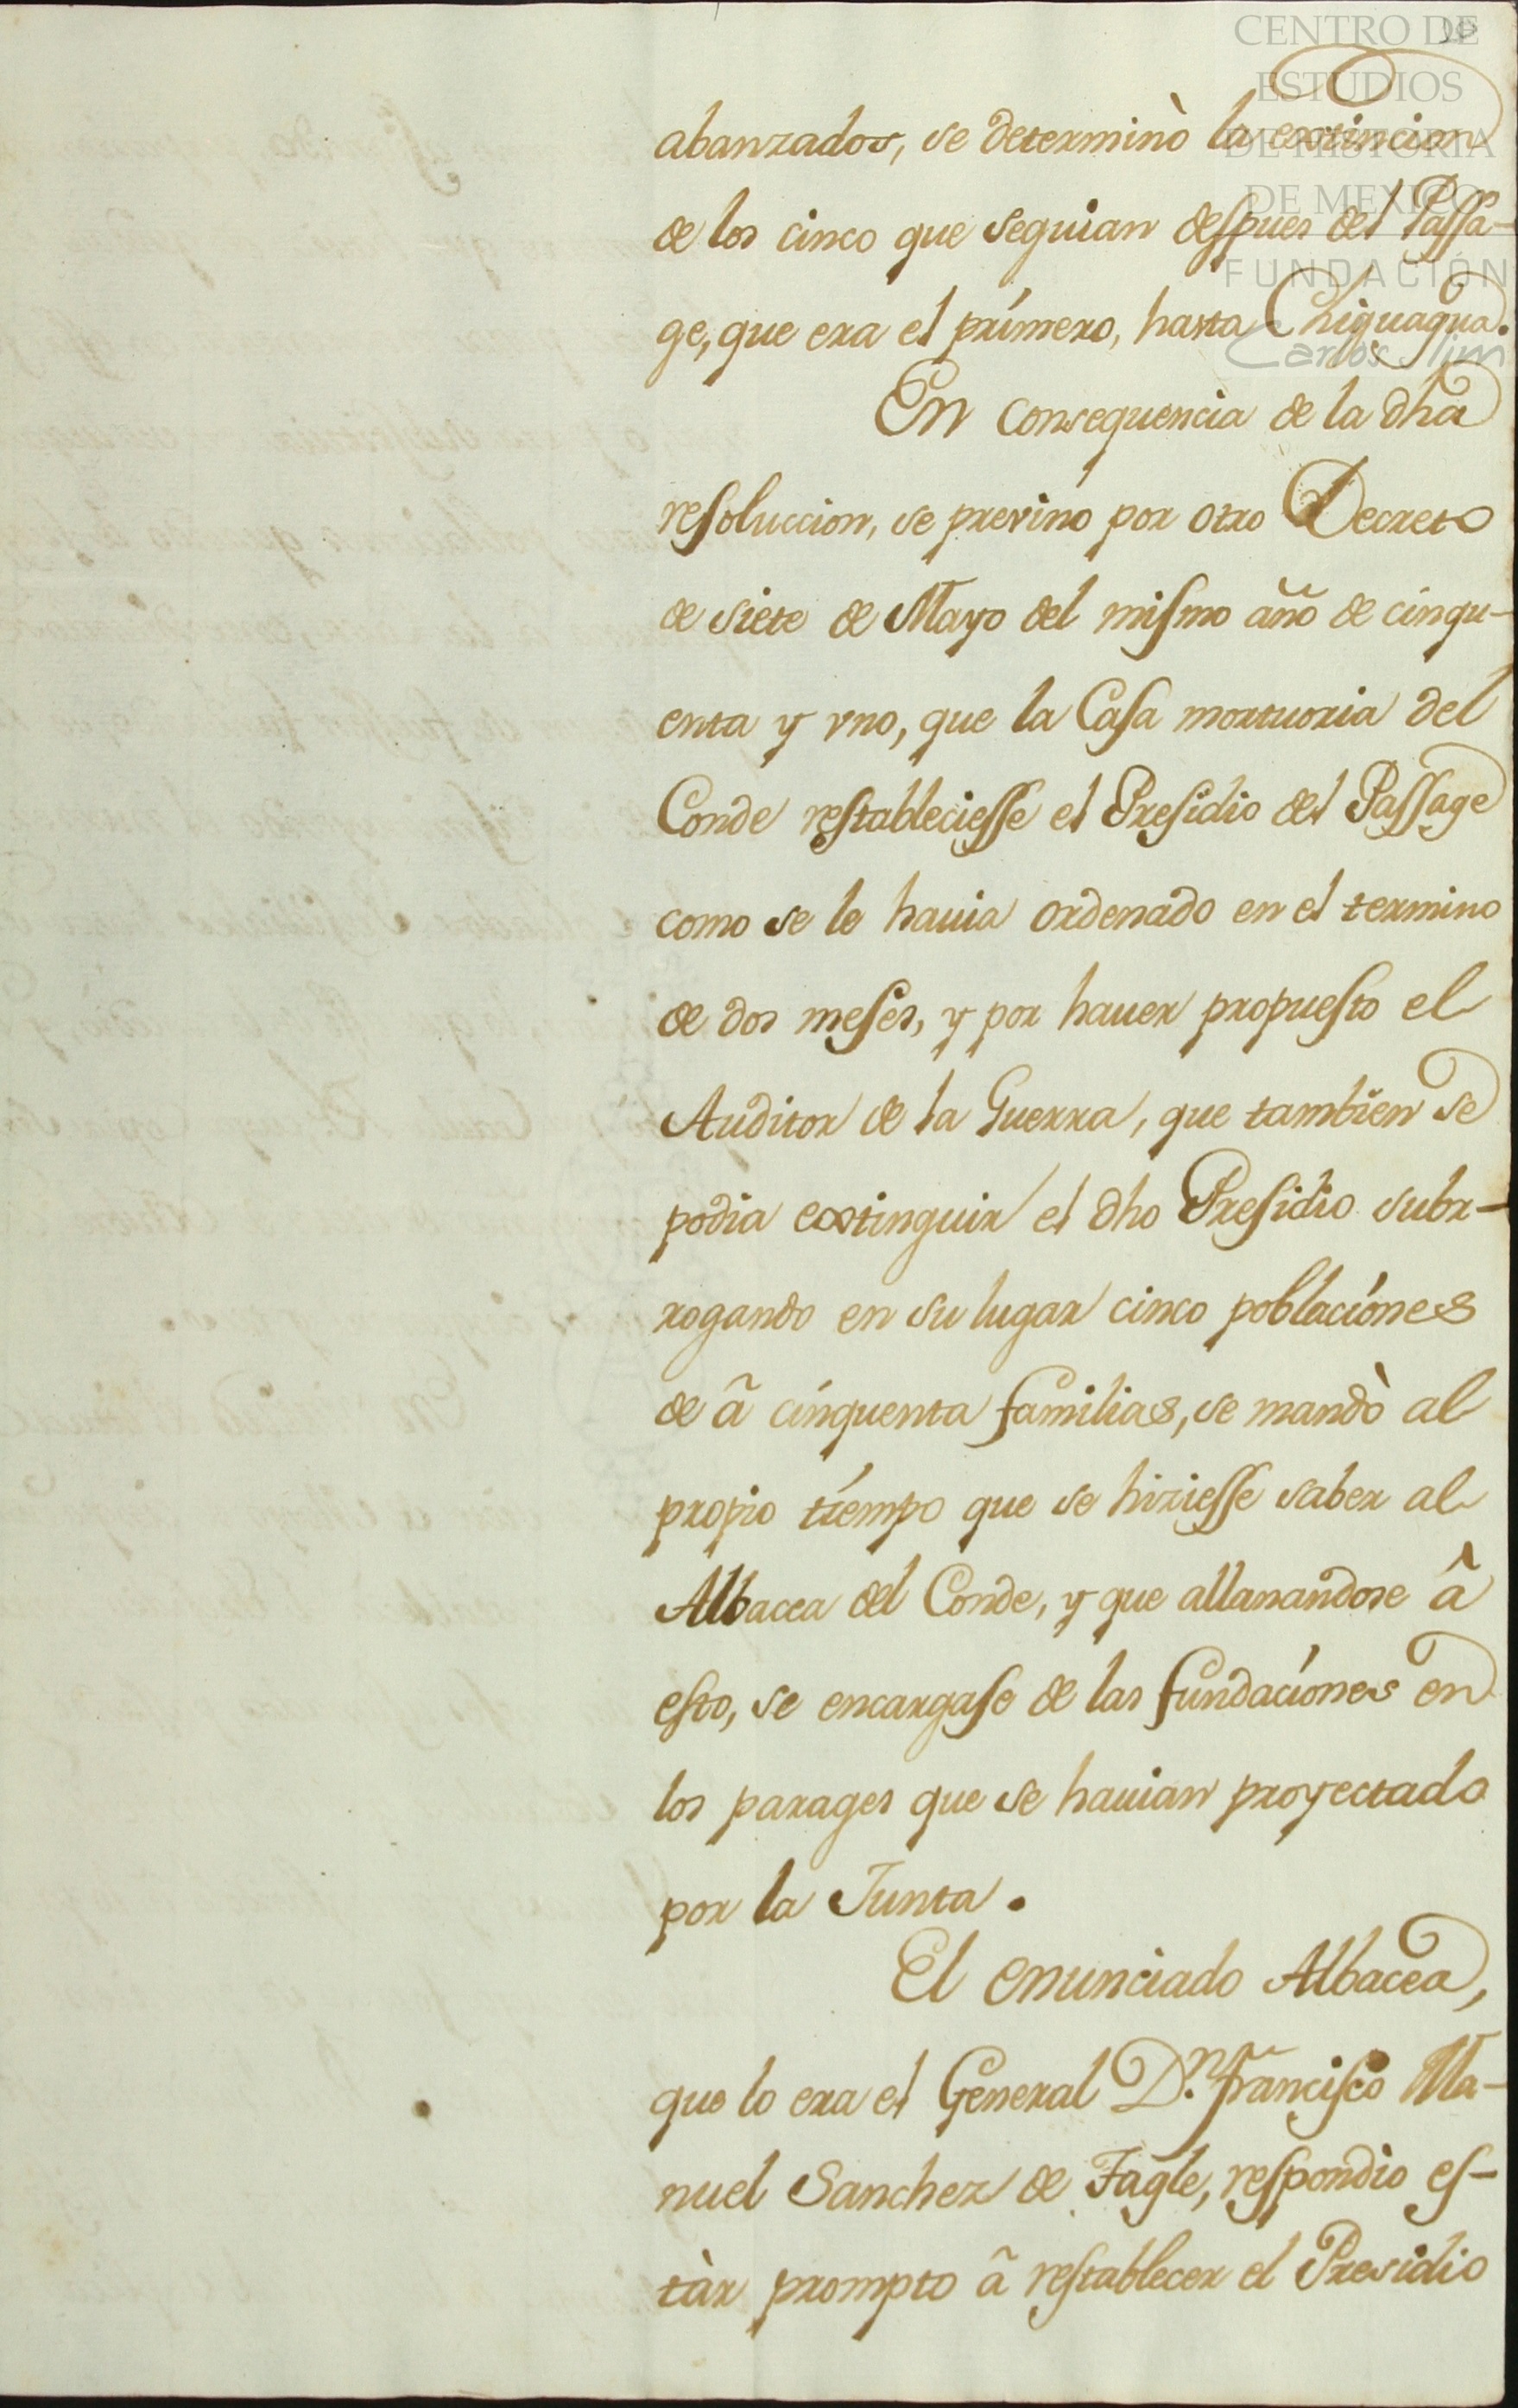 CENTRO DE
ESTUDIOS
DE HISTORIA
DE MEXICO
FUNDACIÓN
Carlos Slim
abanzados, se determinò la extincion
de los cinco que seguian despues del Passa-
ge, que era el primero, hasta Chiguagua.
En consequencia de la dha
resoluccion, se previno por otro Decreto
de siete de Mayo del mismo año de cinqu-
enta y vno, que la Casa mortuoria del
Conde restableciesse el Presidio del Passage
como se le hauia ordenado en el termino
de dos meses, y por hauer propuesto el
Auditor de la Guerra, que tambien se
podia extinguir el dho Presidio subr-
rogando en su lugar cinco poblaciónes
de â cinquenta familias, se mandò al
propio tiempo que se hiziesse saber al
Albacea del Conde, y que allanandose â
esto, se encargase de las fundaciónes en
los parages que se hauian proyectado
por la Junta.
El enunciado Albacea,
que lo era el General D.n Francisco Ma-
nuel Sanchez de Tagle, respondio es-
tàr prompto â restablecer el Presidio